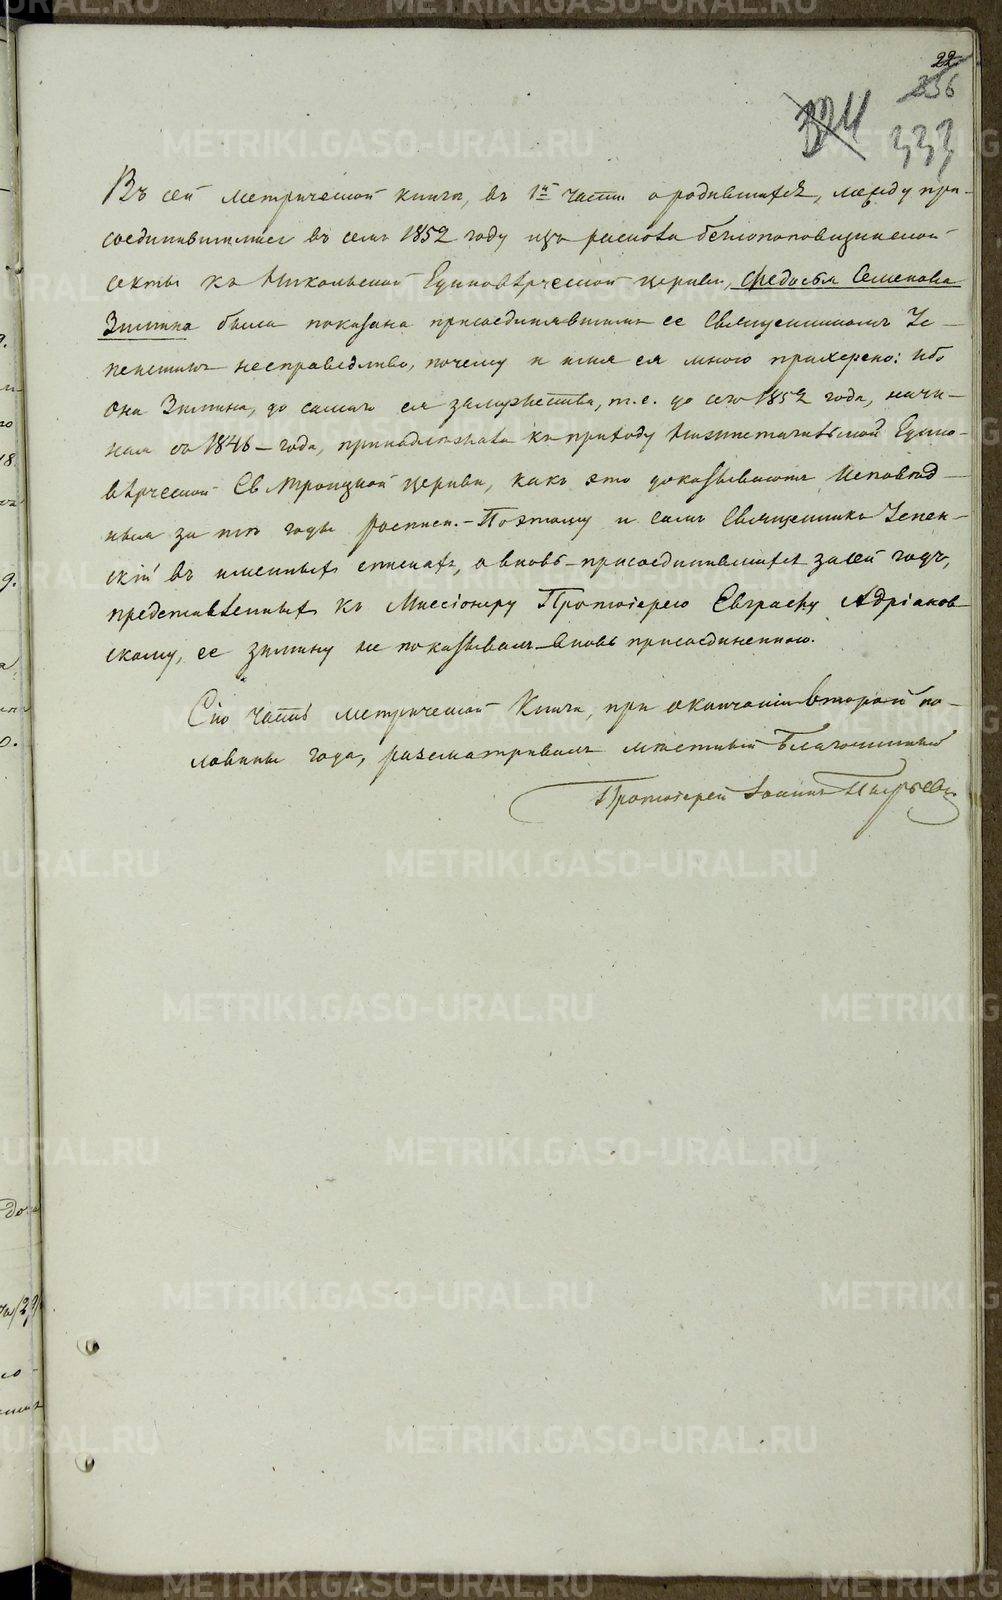 22
256
324
333
Въ сей метрической книгѣ, въ 1й части о родившихся, между при-
соединившимися въ семъ 1852 году изъ раскола бѣглопоповщинской
секты къ Никольской Единовѣрческой церкви, Ѳедосья Семенова
Зимина была показана присоединявшимъ ее Священникомъ Че-
пенскимъ несправедливо, почему и имя ея мною прихерено: ибо
она Зимина, до самаго ея замужества, т. е. до сего 1852 года, начи-
ная съ 1846 – года, принадлежала къ приходу Нижнетагильской Едино-
вѣрческой Св. Троицкой церкви, какъ это доказываютъ Исповѣд-
ныя за тѣ годы росписи. – Поэтому и самъ Священникъ Чепен-
скій въ именныхъ спискахъ, о вновь – присоединившихся за сей годъ,
представленныхъ къ Миссіонеру Протоіерею Евграфу Адріанов-
скому, ее Зимину не показывалъ вновь присоединенною.
Сію часть метрической Книги, при окончаніи второй по-
ловины года, разсматривалъ мѣстный Благочинный
Протоіерей Іоаннъ
METRIKI.GASO-URAL.RU